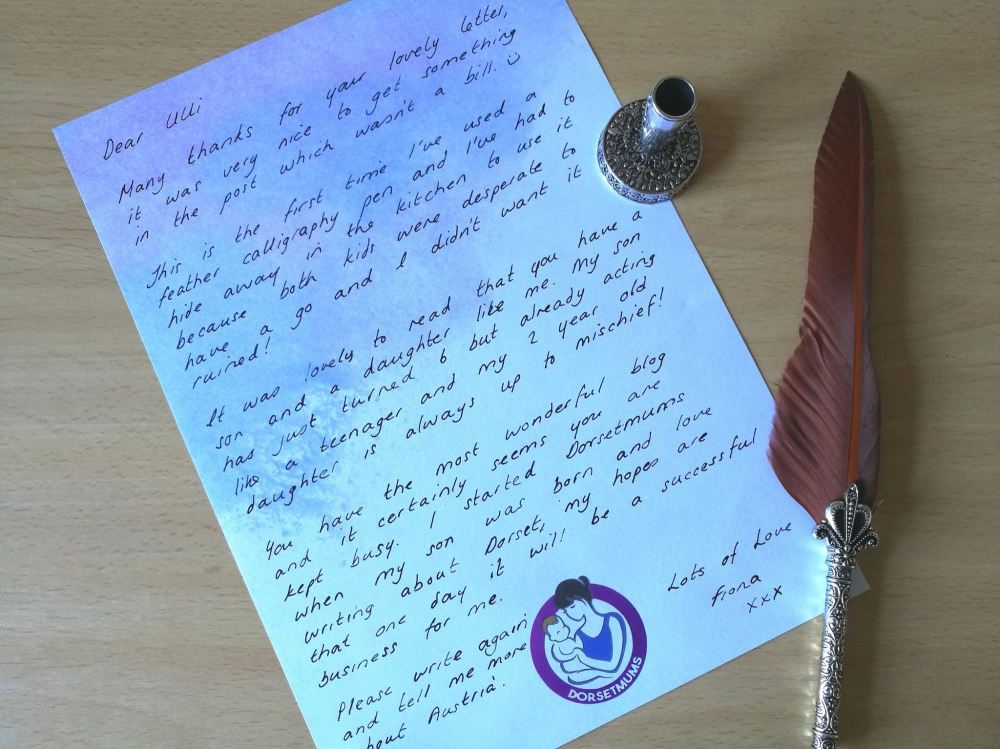 Dear Ulli
Many thanks for your lovely letter,
it was very nice to get something
in the post which wasn't a bill. ☺
This is the first time I've used a
feather calligraphy pen and I've had to
hide away in the kitchen to use it
because both kids were desperate to
have a go and I didn't want it
ruined!
It was lovely to read that you have a
son and a daughter like me. My son
has just turned 6 but already acting
like a teenager and my 2 year old
daughter is always up to mischief!
You have the most wonderful blog
and it certainly seems you are
kept busy. I started Dorsetmums
when my son was born and love
writing about Dorset, my hopes are
that one day it will be a successful
business for me.
Please write again
and tell me more
about Austria.
Lots of Love
Fiona
xxx
DORSETMUMS